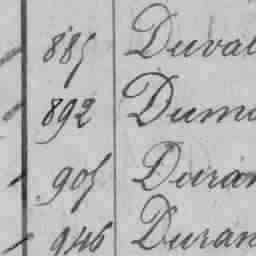 885 Duval
892 Dumo
905 Duran
946 Duran